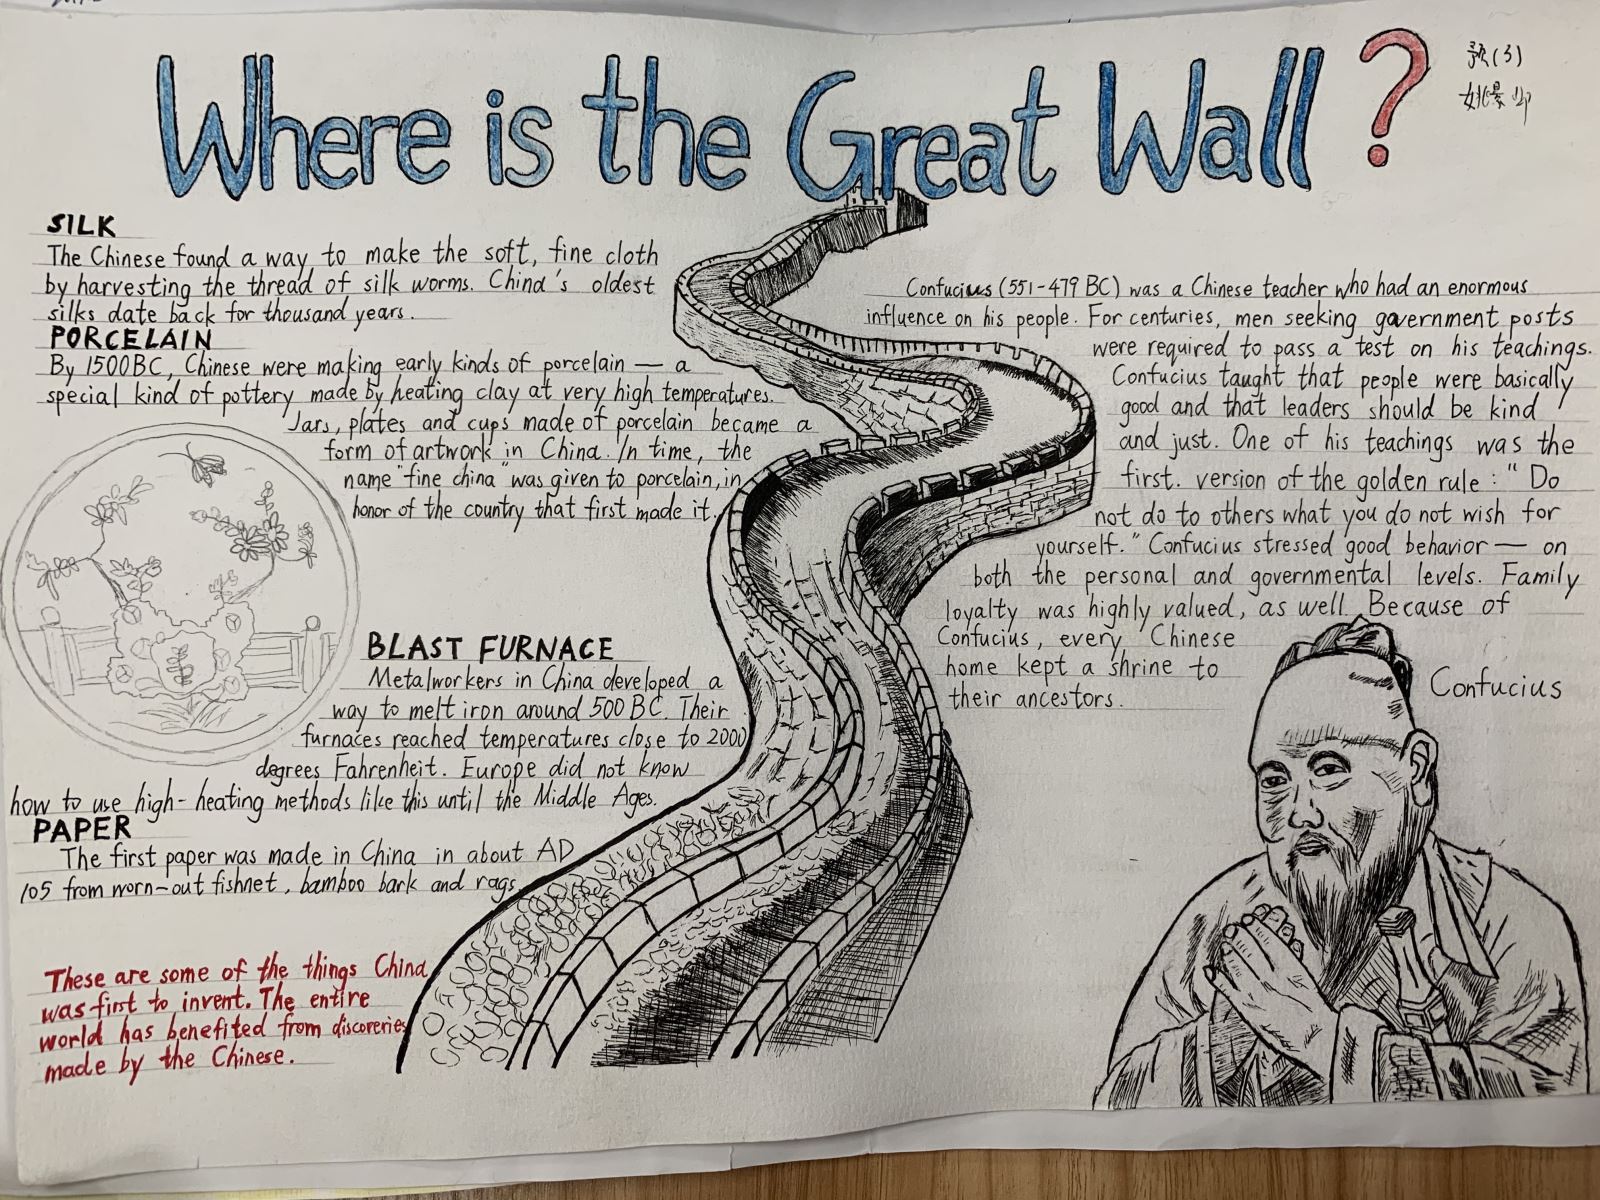 Where is the Great Wall?
预(3)
SILK
The Chinese found a way to make the soft, fine cloth
by harvesting the thread of silk worms. China's oldest
silks date back for thousand years.
PORCELAIN
By 1500BC, Chinese were making early kinds of porcelain — a
special kind of pottery made by heating clay at very high temperatures.
Jars, plates and cups made of porcelain became a
form of artwork in China. In time, the
name "fine china" was given to porcelain, in
honor of the country that first made it.
BLAST FURNACE
Metalworkers in China developed a
way to melt iron around 500 BC. Their
furnaces reached temperatures close to 2000
degrees Fahrenheit. Europe did not know
how to use high-heating methods like this until the Middle Ages.
PAPER
The first paper was made in China in about AD
105 from worn-out fishnet, bamboo bark and rags.
These are some of the things China
was first to invent. The entire
world has benefited from discoveries
made by the Chinese.
Confucius (551-479 BC) was a Chinese teacher who had an enormous
influence on his people. For centuries, men seeking government posts
were required to pass a test on his teachings.
Confucius taught that people were basically
good and that leaders should be kind
and just. One of his teachings was the
first. version of the golden rule: "Do
not do to others what you do not wish for
yourself." Confucius stressed good behavior — on
both the personal and governmental levels. Family
loyalty was highly valued, as well. Because of
Confucius, every Chinese
home kept a shrine to
their ancestors.
Confucius